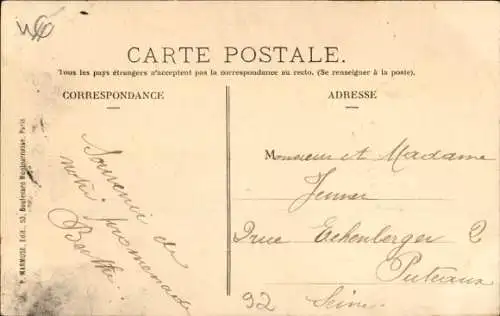 CARTE POSTALE.
Tous les pays étrangers n'acceptent pas la correspondance au recto. (Se renseigner à la poste).
CORRESPONDANCE
ADRESSE
Souvenir de
notre promenade
Berthe
Monsieur et Madame
2 rue Echenberger 2
Puteaux
92 Seine
P. MARMUSE, Edit., 53, Boulevard Montparnasse, Paris